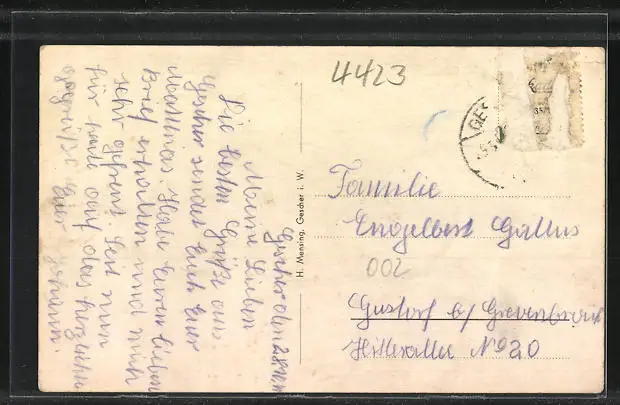 4423
GES
Gescher den
Meine Lieben
Die besten Grüße aus
Gescher sendet Euch Euer
Matthias. Habe Euren lieben
Brief erhalten und mich
sehr gefreut. Seit nun
für heute auf das herzlichste
gegrüßt Euer
H. Mensing, Gescher i. W.
Familie
Engelbert Gallus
002
Gustorf b/ Grevenbroich
Hitlerallee № 20